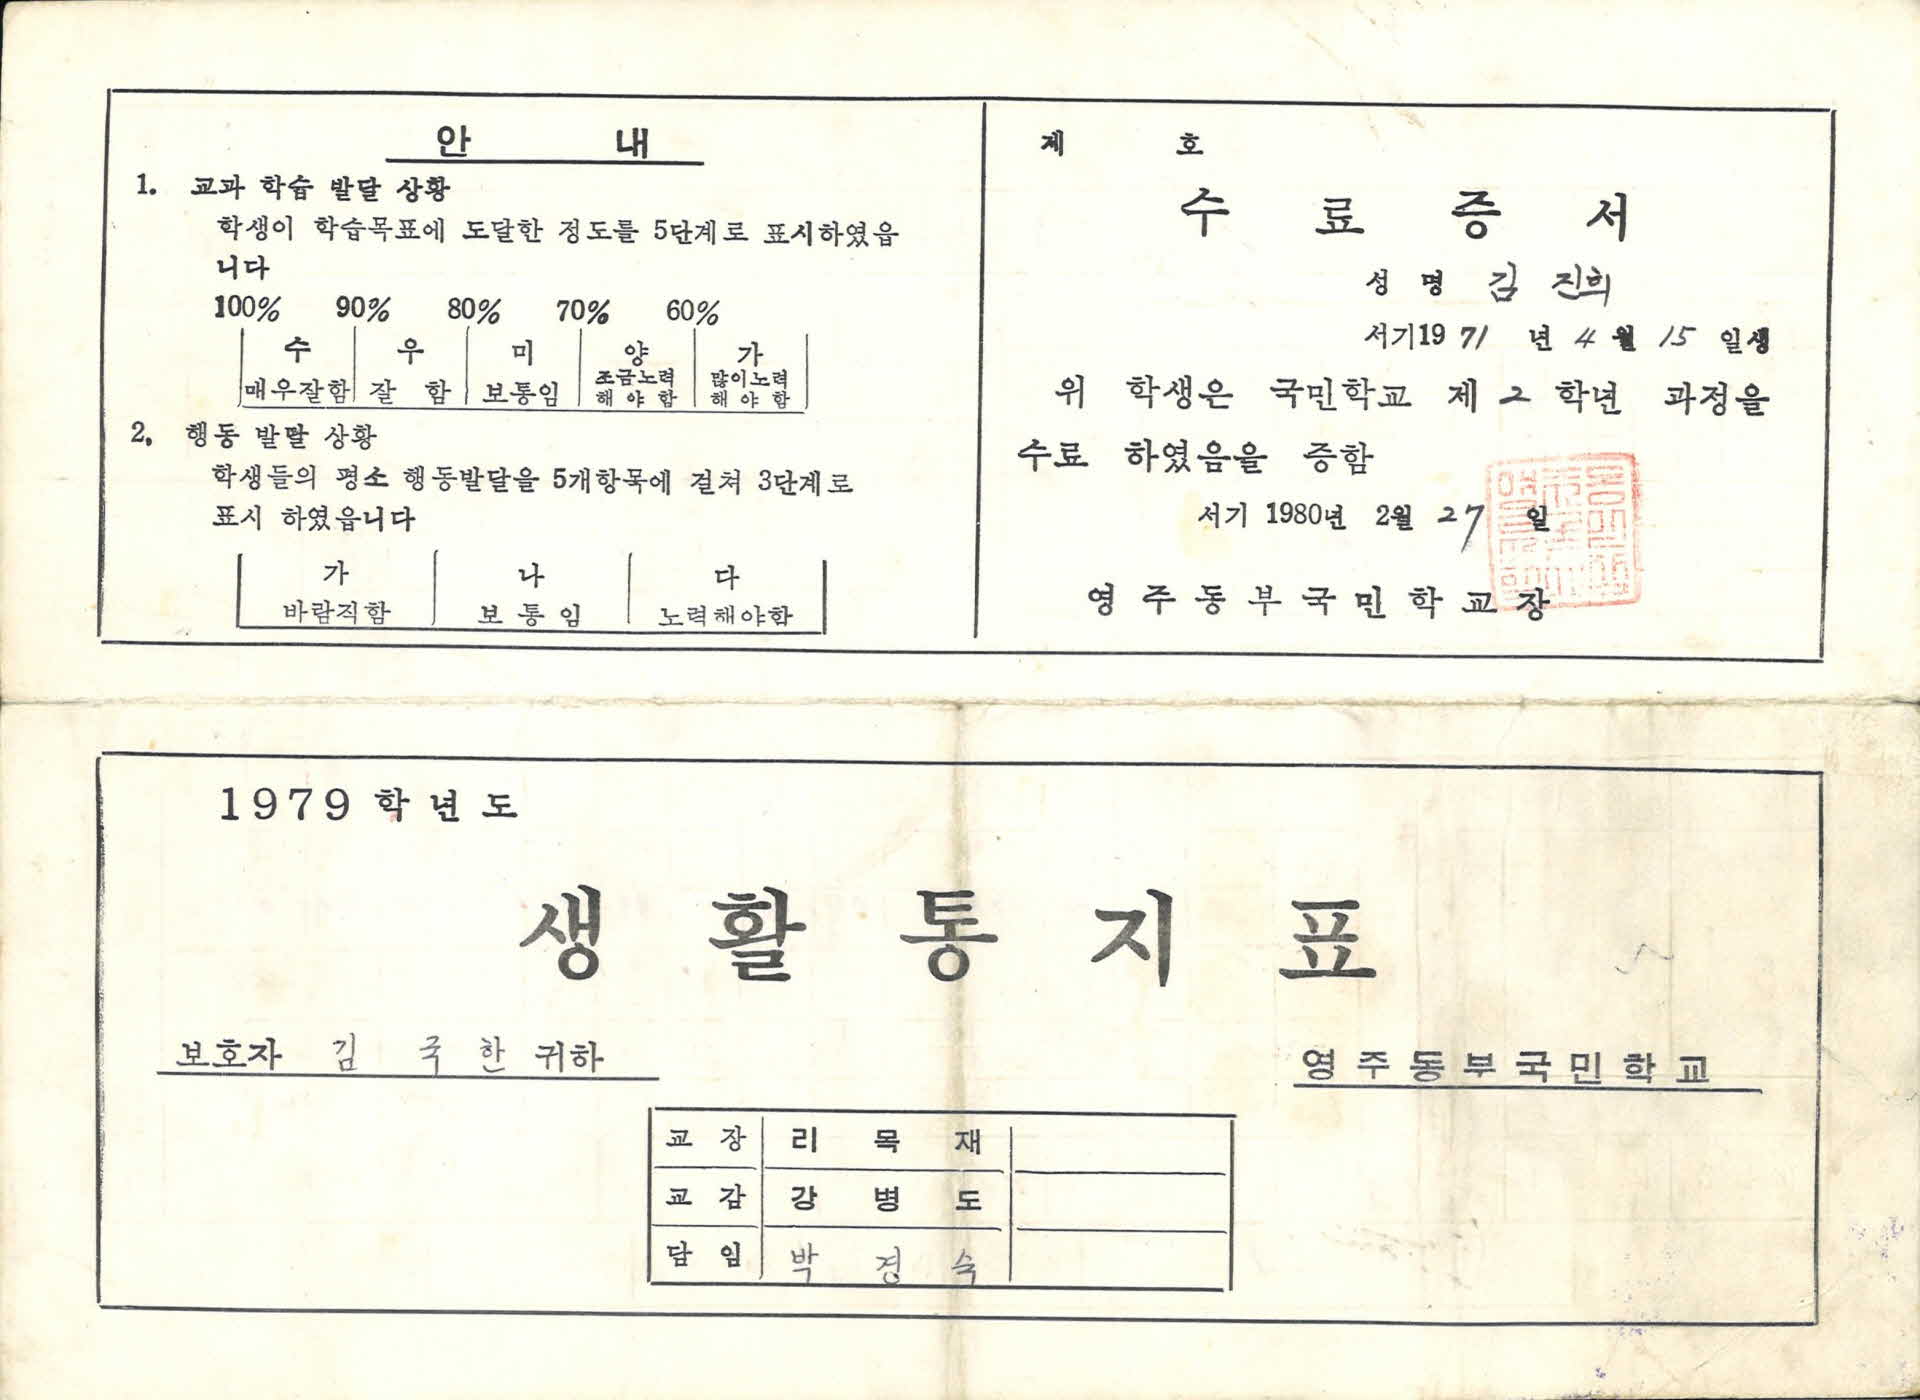 안 내
1. 교과 학습 발달 상황
학생이 학습목표에 도달한 정도를 5단계로 표시하였읍
니다
100% 90% 80% 70% 60%
수 우 미 양 가
매우잘함 잘 함 보통임 조금노력 해야함 많이노력 해야함
2. 행동 발달 상황
학생들의 평소 행동발달을 5개항목에 걸쳐 3단계로
표시 하였읍니다
가 나 다
바람직함 보통임 노력해야함
제 호
수 료 증 서
성 명 김 진희
서기1971 년 4월 15 일생
위 학생은 국민학교 제 2 학년 과정을
수료 하였음을 증함
서기 1980년 2월 27 일
영주동부국민학교장
1979 학년도
생 활 통 지 표
보호자 김 국 한 귀하
영주동부국민학교
교 장 리 목 재
교 감 강 병 도
담 임 박 경 숙